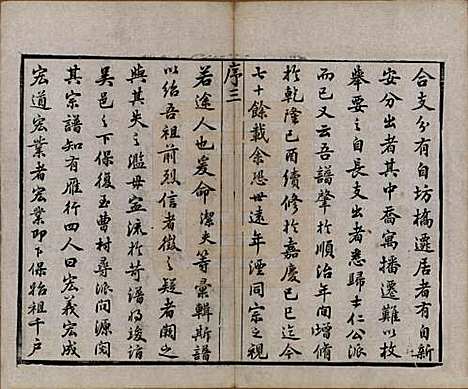 合支分有自坊橋遷居者有自新
安分出者其中喬寓播遷難以枚
舉要之自長支出者悉歸士仁公派
而已又云吾譜肇於順治年間增脩
於乾隆己酉續修於嘉慶己巳迄今
七十餘載余恐世遠年湮同宗之視
序三
若途人也爰命潔夫等彙輯斯譜
以紹吾祖前烈信者徵之疑者闕之
與其失之濫毋寧流於苛譜將竣詣
吳邑之下保復至曹村尋派問源閱
其宗譜知有雁行四人曰宏義宏成
宏道宏業者宏業即下保始祖千戶